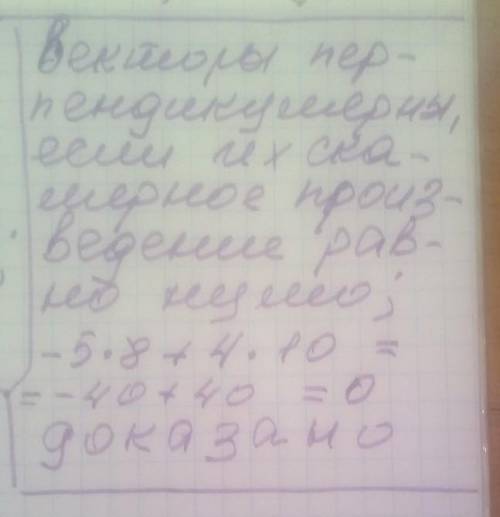 Векторы пер-
пендикулярны,
если их ска-
лярное произ-
ведение рав-
но нулю;
-5·8+4·10 =
=-40+40 =0
доказано